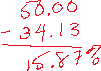 50.00
- 34.13
15.87%